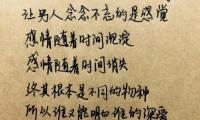 让男人念念不忘的是感觉
感情随着时间沉淀
感情随着时间消失
终其根本是不同的物种
所以谁又能明白谁的深爱